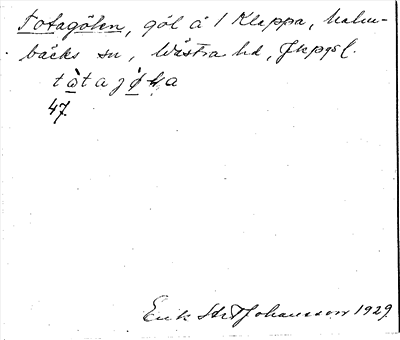 Totagölen, göl å 1 Klappa, Malm-
bäcks sn, Västra hd, Jkpgs l.
47.
Erik Johansson 1929